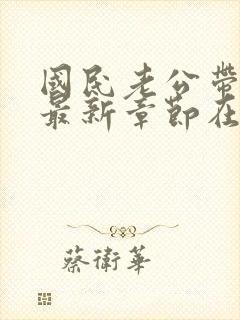 國民老公帶
最新章節在
蔡衛華